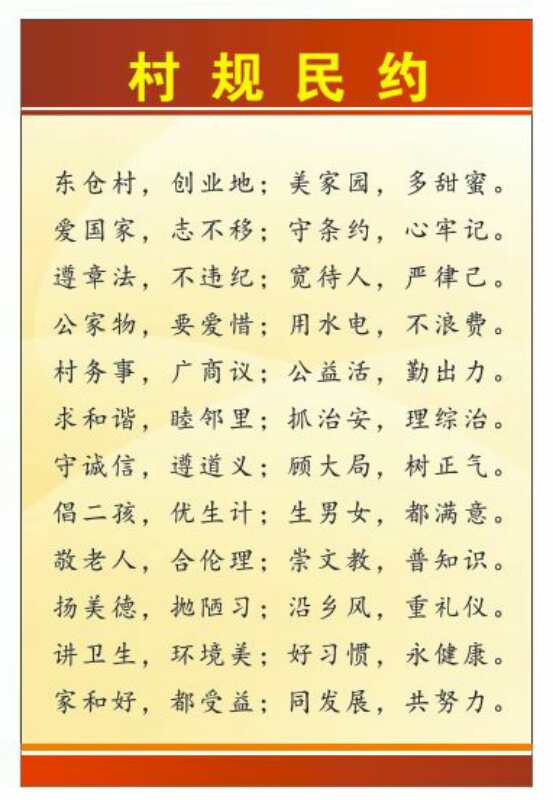 村规民约
东仓村，创业地；美家园，多甜蜜。
爱国家，志不移；守条约，心牢记。
遵章法，不违纪；宽待人，严律己。
公家物，要爱惜；用水电，不浪费。
村务事，广商议；公益活，勤出力。
求和谐，睦邻里；抓治安，理综治。
守诚信，遵道义；顾大局，树正气。
倡二孩，优生计；生男女，都满意。
敬老人，合伦理；崇文教，普知识。
扬美德，抛陋习；沿乡风，重礼仪。
讲卫生，环境美；好习惯，永健康。
家和好，都受益；同发展，共努力。